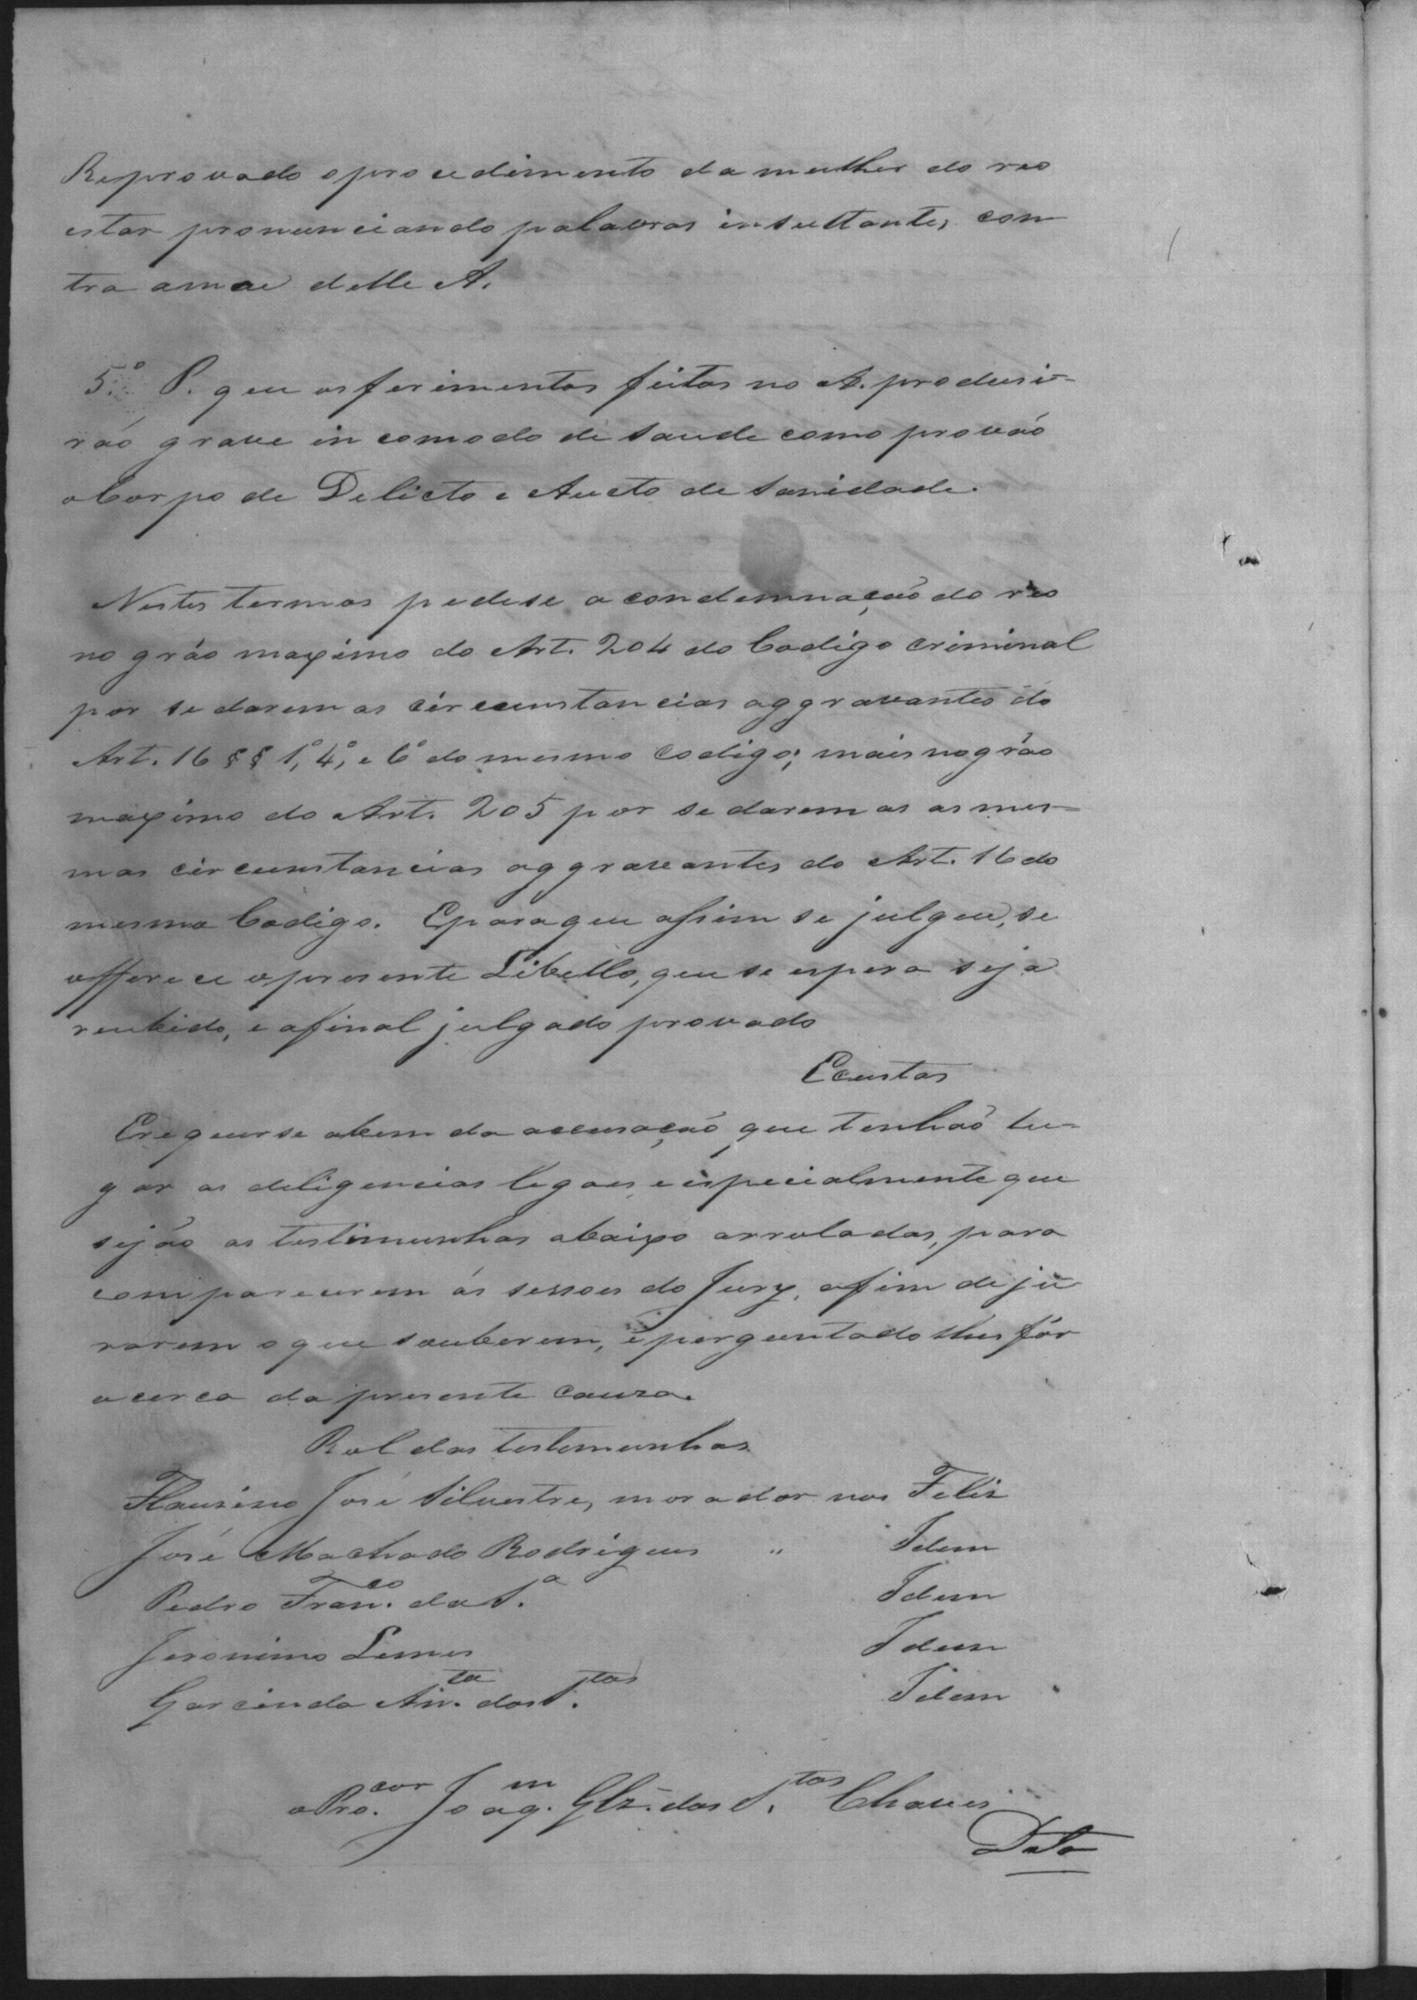 Reprovado o procedimento da mulher do reo
estar pronunciando palavras insultantes con
tra a mae delle A.
5.º P. que os ferimentos feitos no A. produsi-
rão grave incomodo de saude como provão
o Corpo de Delicto e Aucto de Sanidade.
Nestes termos pede se a condemnação do reo
no gráo maximo do Art. 204 do Codigo criminal
por se darem as circunstancias aggravantes do
Art. 16 §§ 1º, 4º, e 6º do mesmo codigo; mais no gráo
maximo do Art. 205 por se darem as as mes-
mas circunstancias aggravantes do Art. 16 do
mesmo Codigo. E para que assim se julgue, se
offerece o presente Libello, que se espera seja
recebido, e afinal julgado provado
E custas
E requer se a bem da accusação, que tenhão lu-
gar as deligencias legaes, e especialmente que
sejão as testimunhas abaixo arroladas, para
comparecerem ás sessoes do Jury, afim de ju
rarem o que souberem, e perguntado lhes fôr
acerca da presente causa.
Rol das testemunhas
Flausino José Silvestre, morador nos Feliz
José Machado Rodrigues " Idem
Pedro Fran.co da S.a Idem
Jeronimo Lemes Idem
Garcinda An.ta dos S.tos Idem
o Pro.cor Joaq.m Glz. dos S.tos Chaves
Data